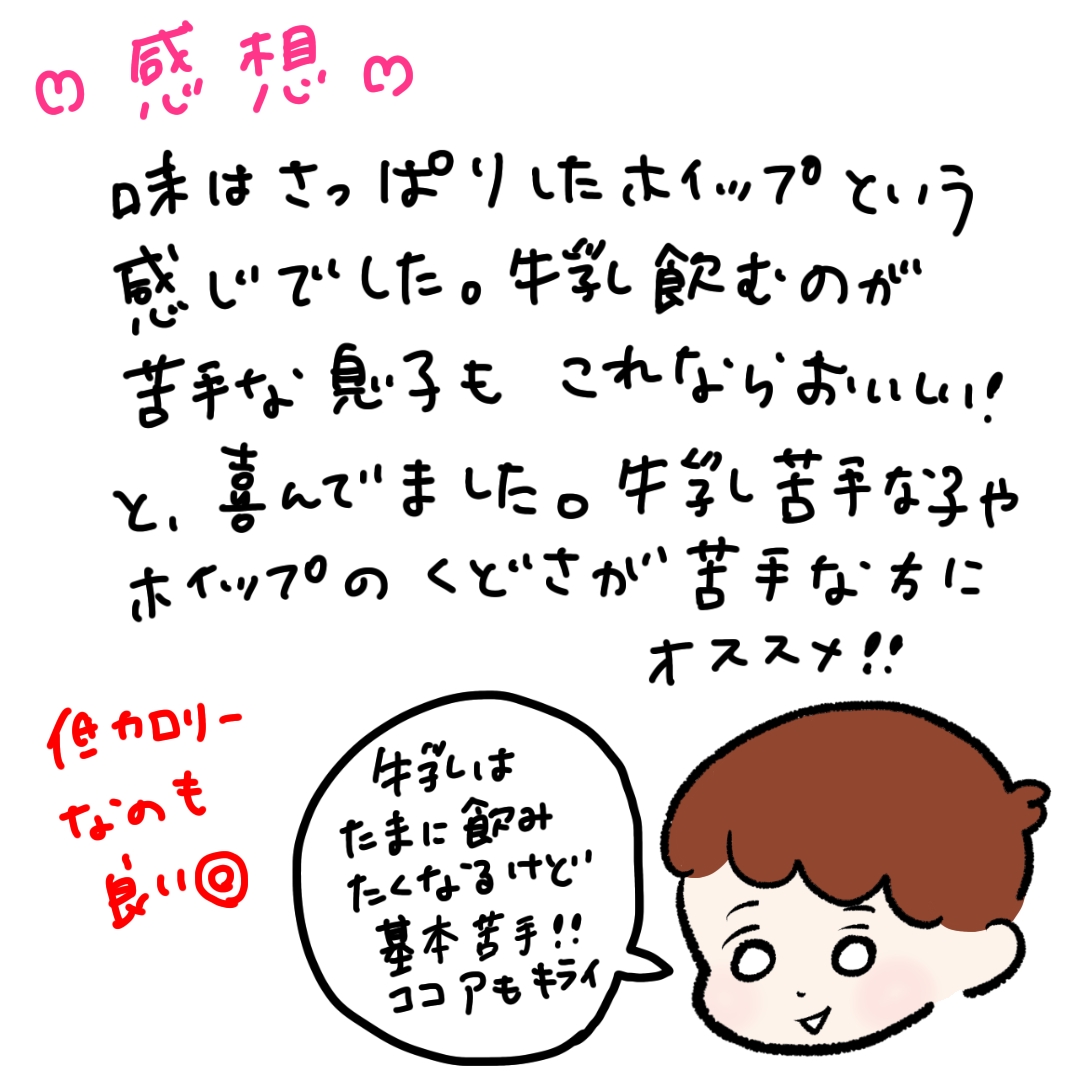 感想
味はさっぱりしたホイップという
感じでした。牛乳飲むのが
苦手な息子も これならおいしい!
と、喜んでました。牛乳苦手な子や
ホイップのくどさが苦手な方に
オススメ!!
低カロリー
なのも
良い◎
牛乳は
たまに飲み
たくなるけど
基本苦手!!
ココアもキライ